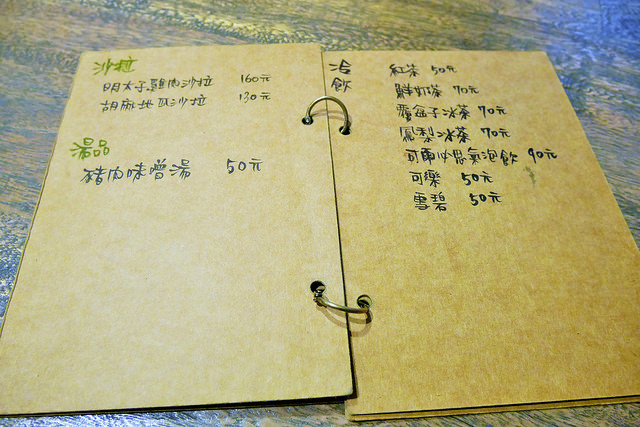 沙拉
明太子雞肉沙拉 160元
胡麻地瓜沙拉 130元
湯品
豬肉味噌湯 50元
冷飲
紅茶 50元
鮮奶茶 70元
覆盆子冰茶 70元
鳳梨冰茶 70元
可爾必思氣泡飲 90元
可樂 50元
雪碧 50元